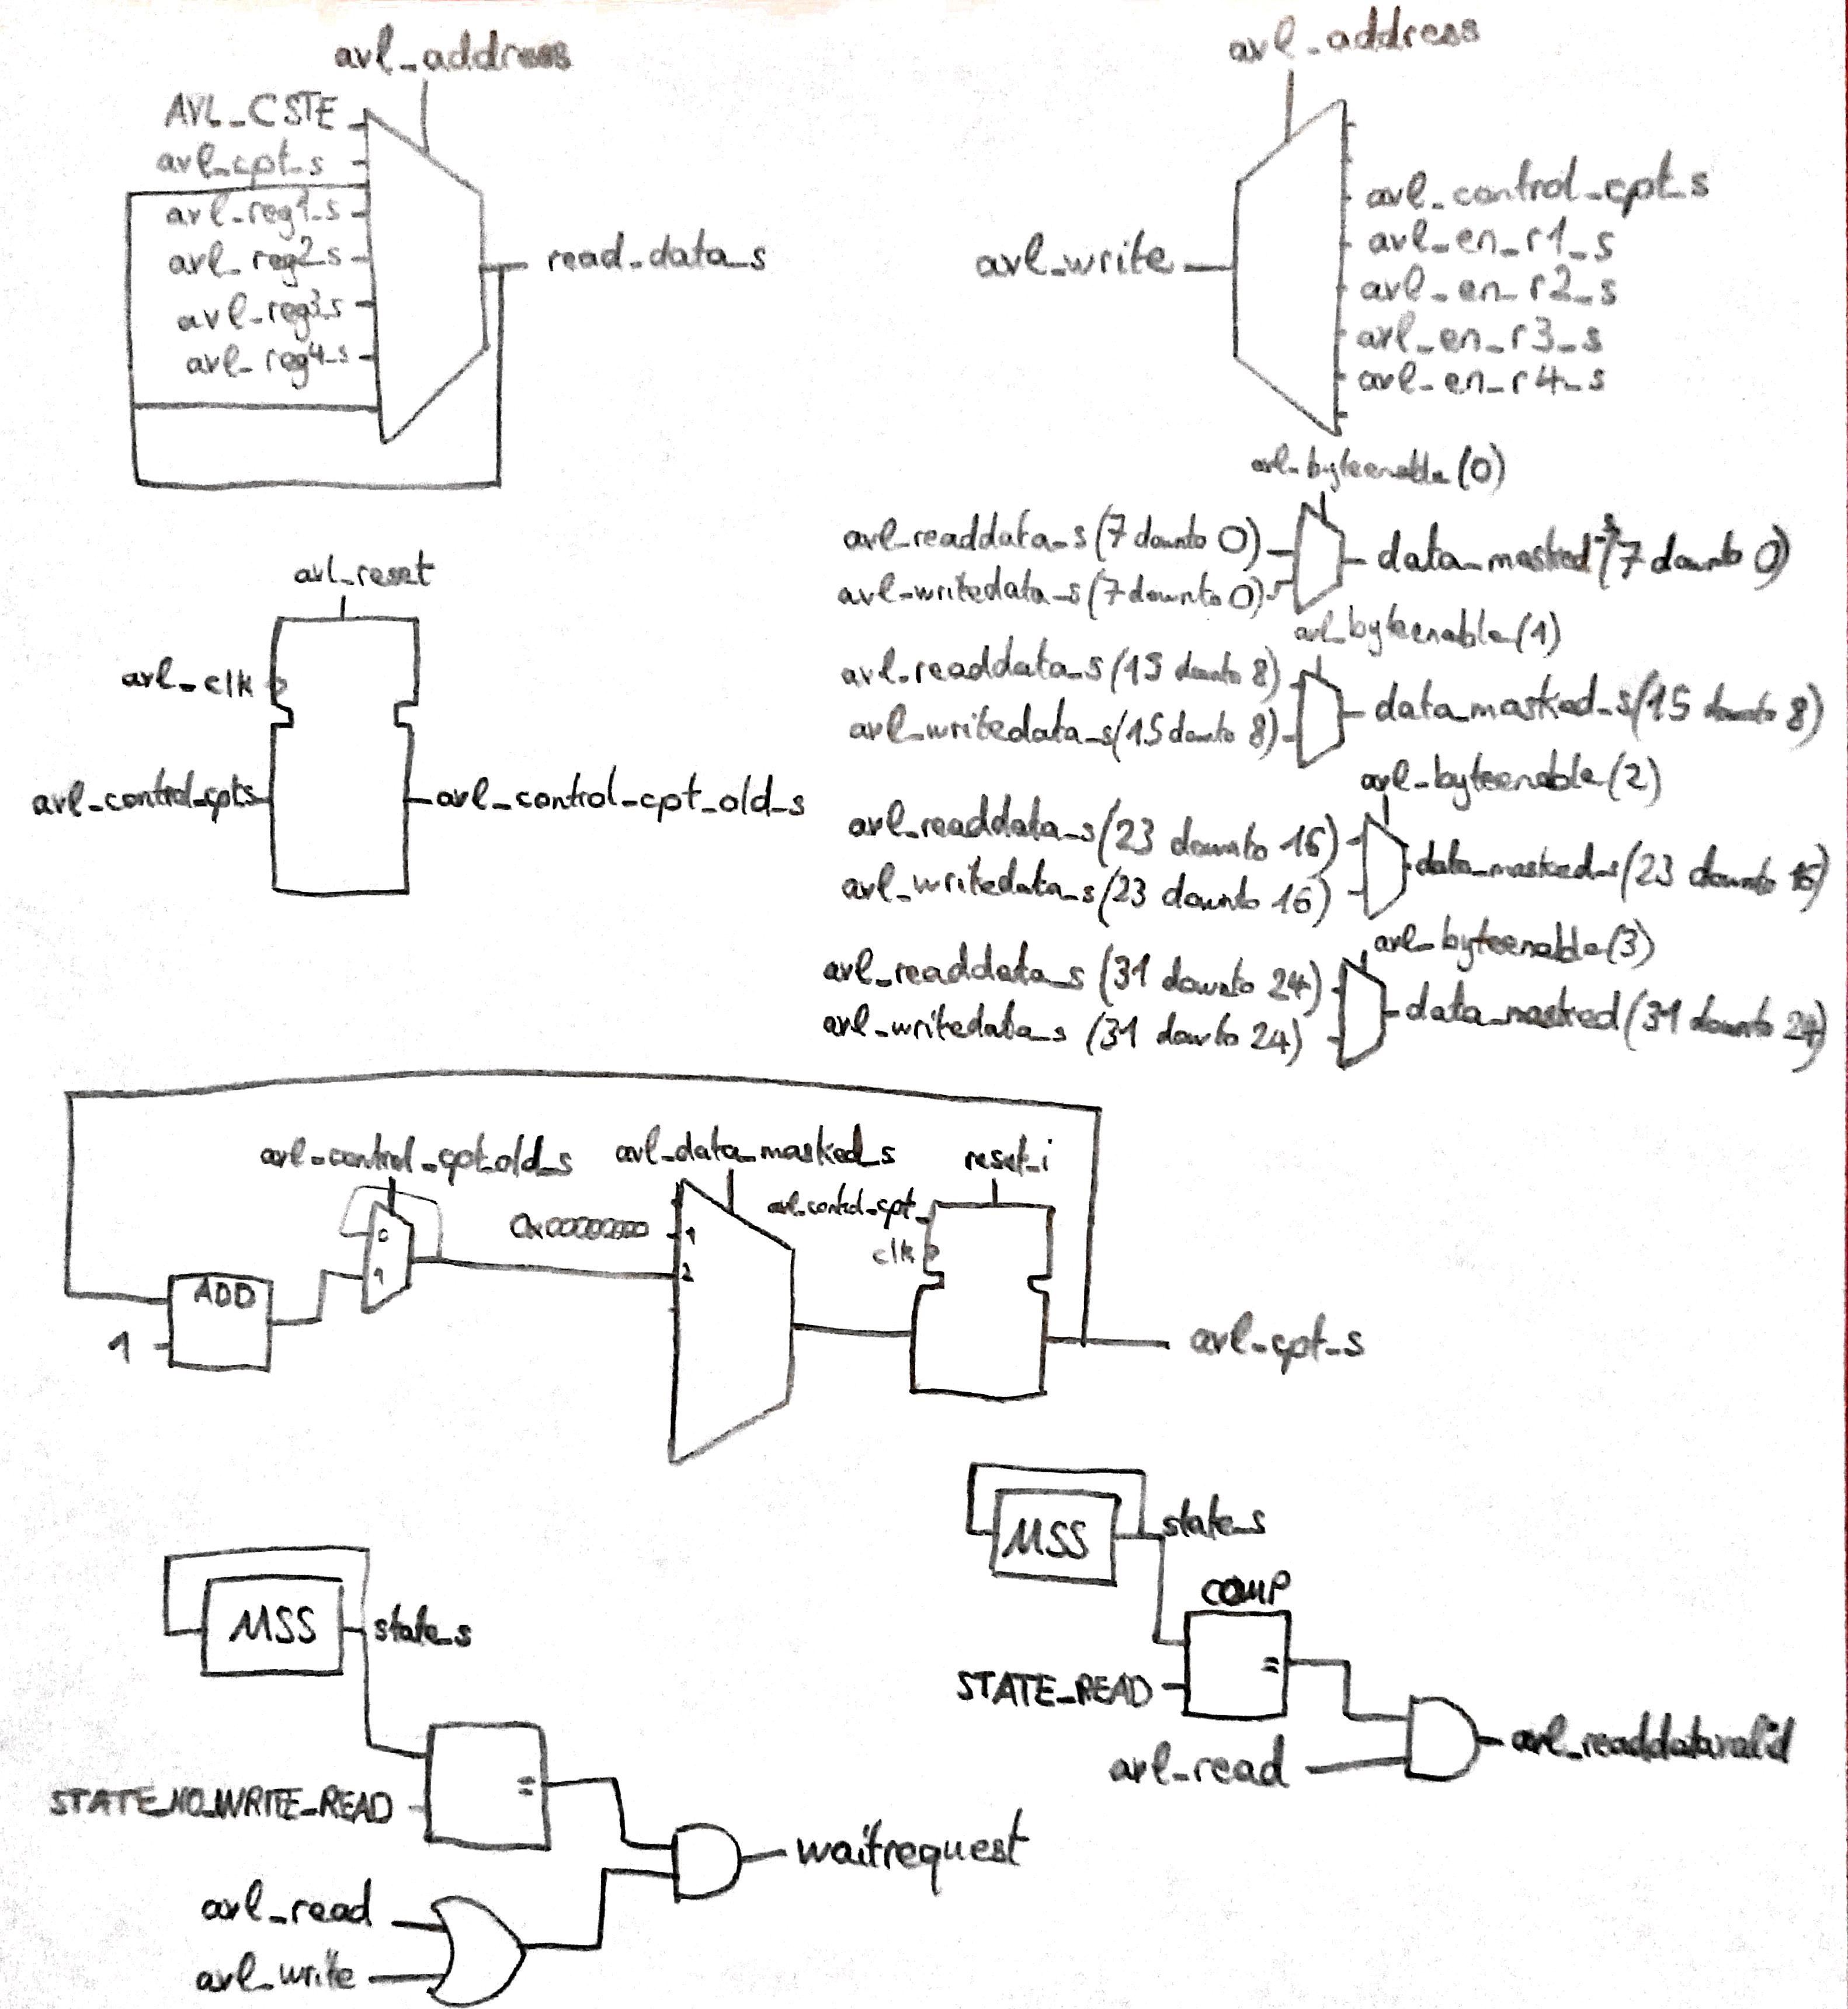 avl_address
AVL_CSTE
avl_cpt_s
avl_reg1_s
avl_reg2_s
avl_reg3_s
avl_reg4_s
read_data_s
avl_address
avl_write
avl_control_cpt_s
avl_en_r1_s
avl_en_r2_s
avl_en_r3_s
avl_en_r4_s
avl_reset
avl_clk
avl_control_cpts
avl_control_cpt_old_s
avl_byteenable(0)
avl_readdata_s(7 downto 0)
avl_writedata_s(7 downto 0)
data_masked_s(7 downto 0)
avl_byteenable(1)
avl_readdata_s(15 downto 8)
avl_writedata_s(15 downto 8)
data_masked_s(15 downto 8)
avl_byteenable(2)
avl_readdata_s(23 downto 16)
avl_writedata_s(23 downto 16)
data_masked_s(23 downto 16)
avl_byteenable(3)
avl_readdata_s (31 downto 24)
avl_writedata_s (31 downto 24)
data_masked(31 downto 24)
avl_control_cpt_old_s
avl_data_masked_s
reset_i
avl_control_cpt_
clk
0x00000000
0
1
1
2
ADD
1
avl_cpt_s
MSS
state_s
COMP
=
STATE_READ
avl_read
avl_readdatavalid
MSS
state_s
STATE_NO_WRITE_READ
=
waitrequest
avl_read
avl_write